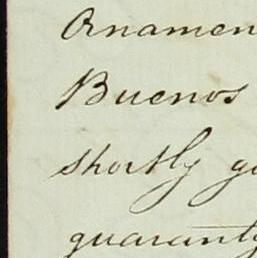 Ornamen
Buenos
shortly go
guaranty